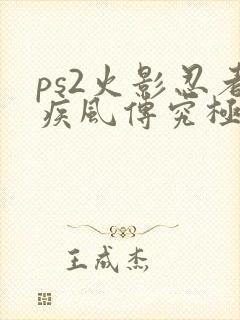 ps2火影忍者
疾風傳究極
王成杰